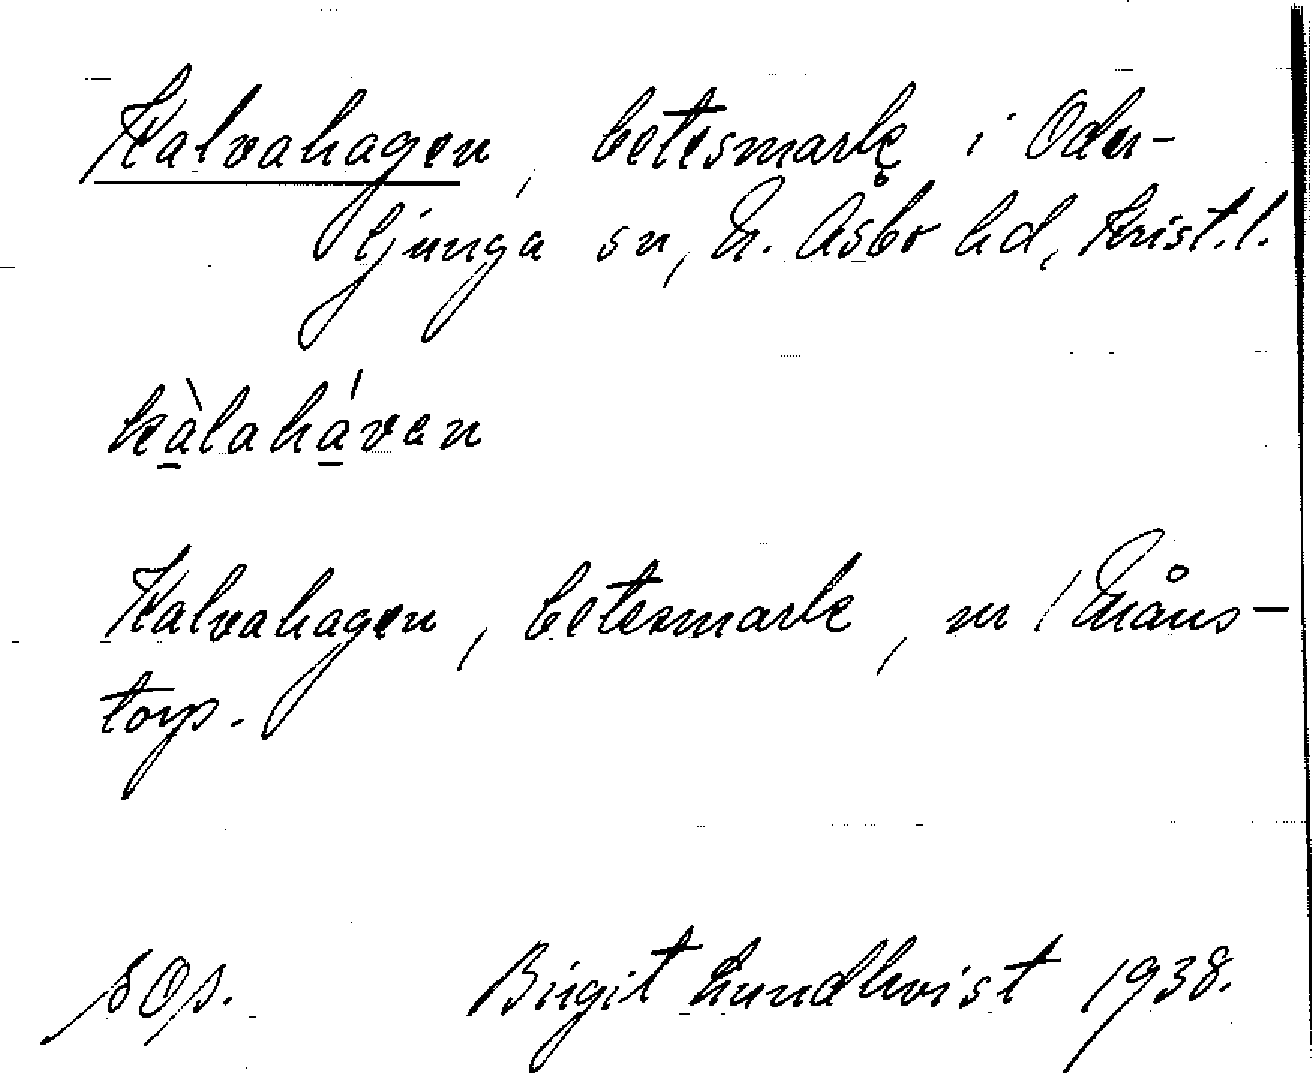 Kalvahagen, betesmark i Oder-
ljunga sn, N. Åsbo hd, Krist. l.
kàlahávan
Kalvahagen, betesmark, m / Måns-
torp.
Birgit Lundkvist 1938.